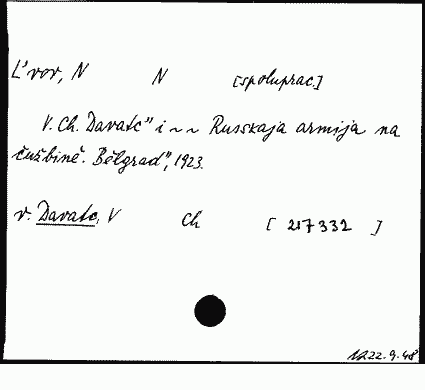 L'vov, N N [spoluprac.]
V. Ch. Davatc" i ~ ~ Russkaja armija na
čužbině. Bělgrad", 1923.
v. Davatc, V Ch [ 217332 ]
22.9.48